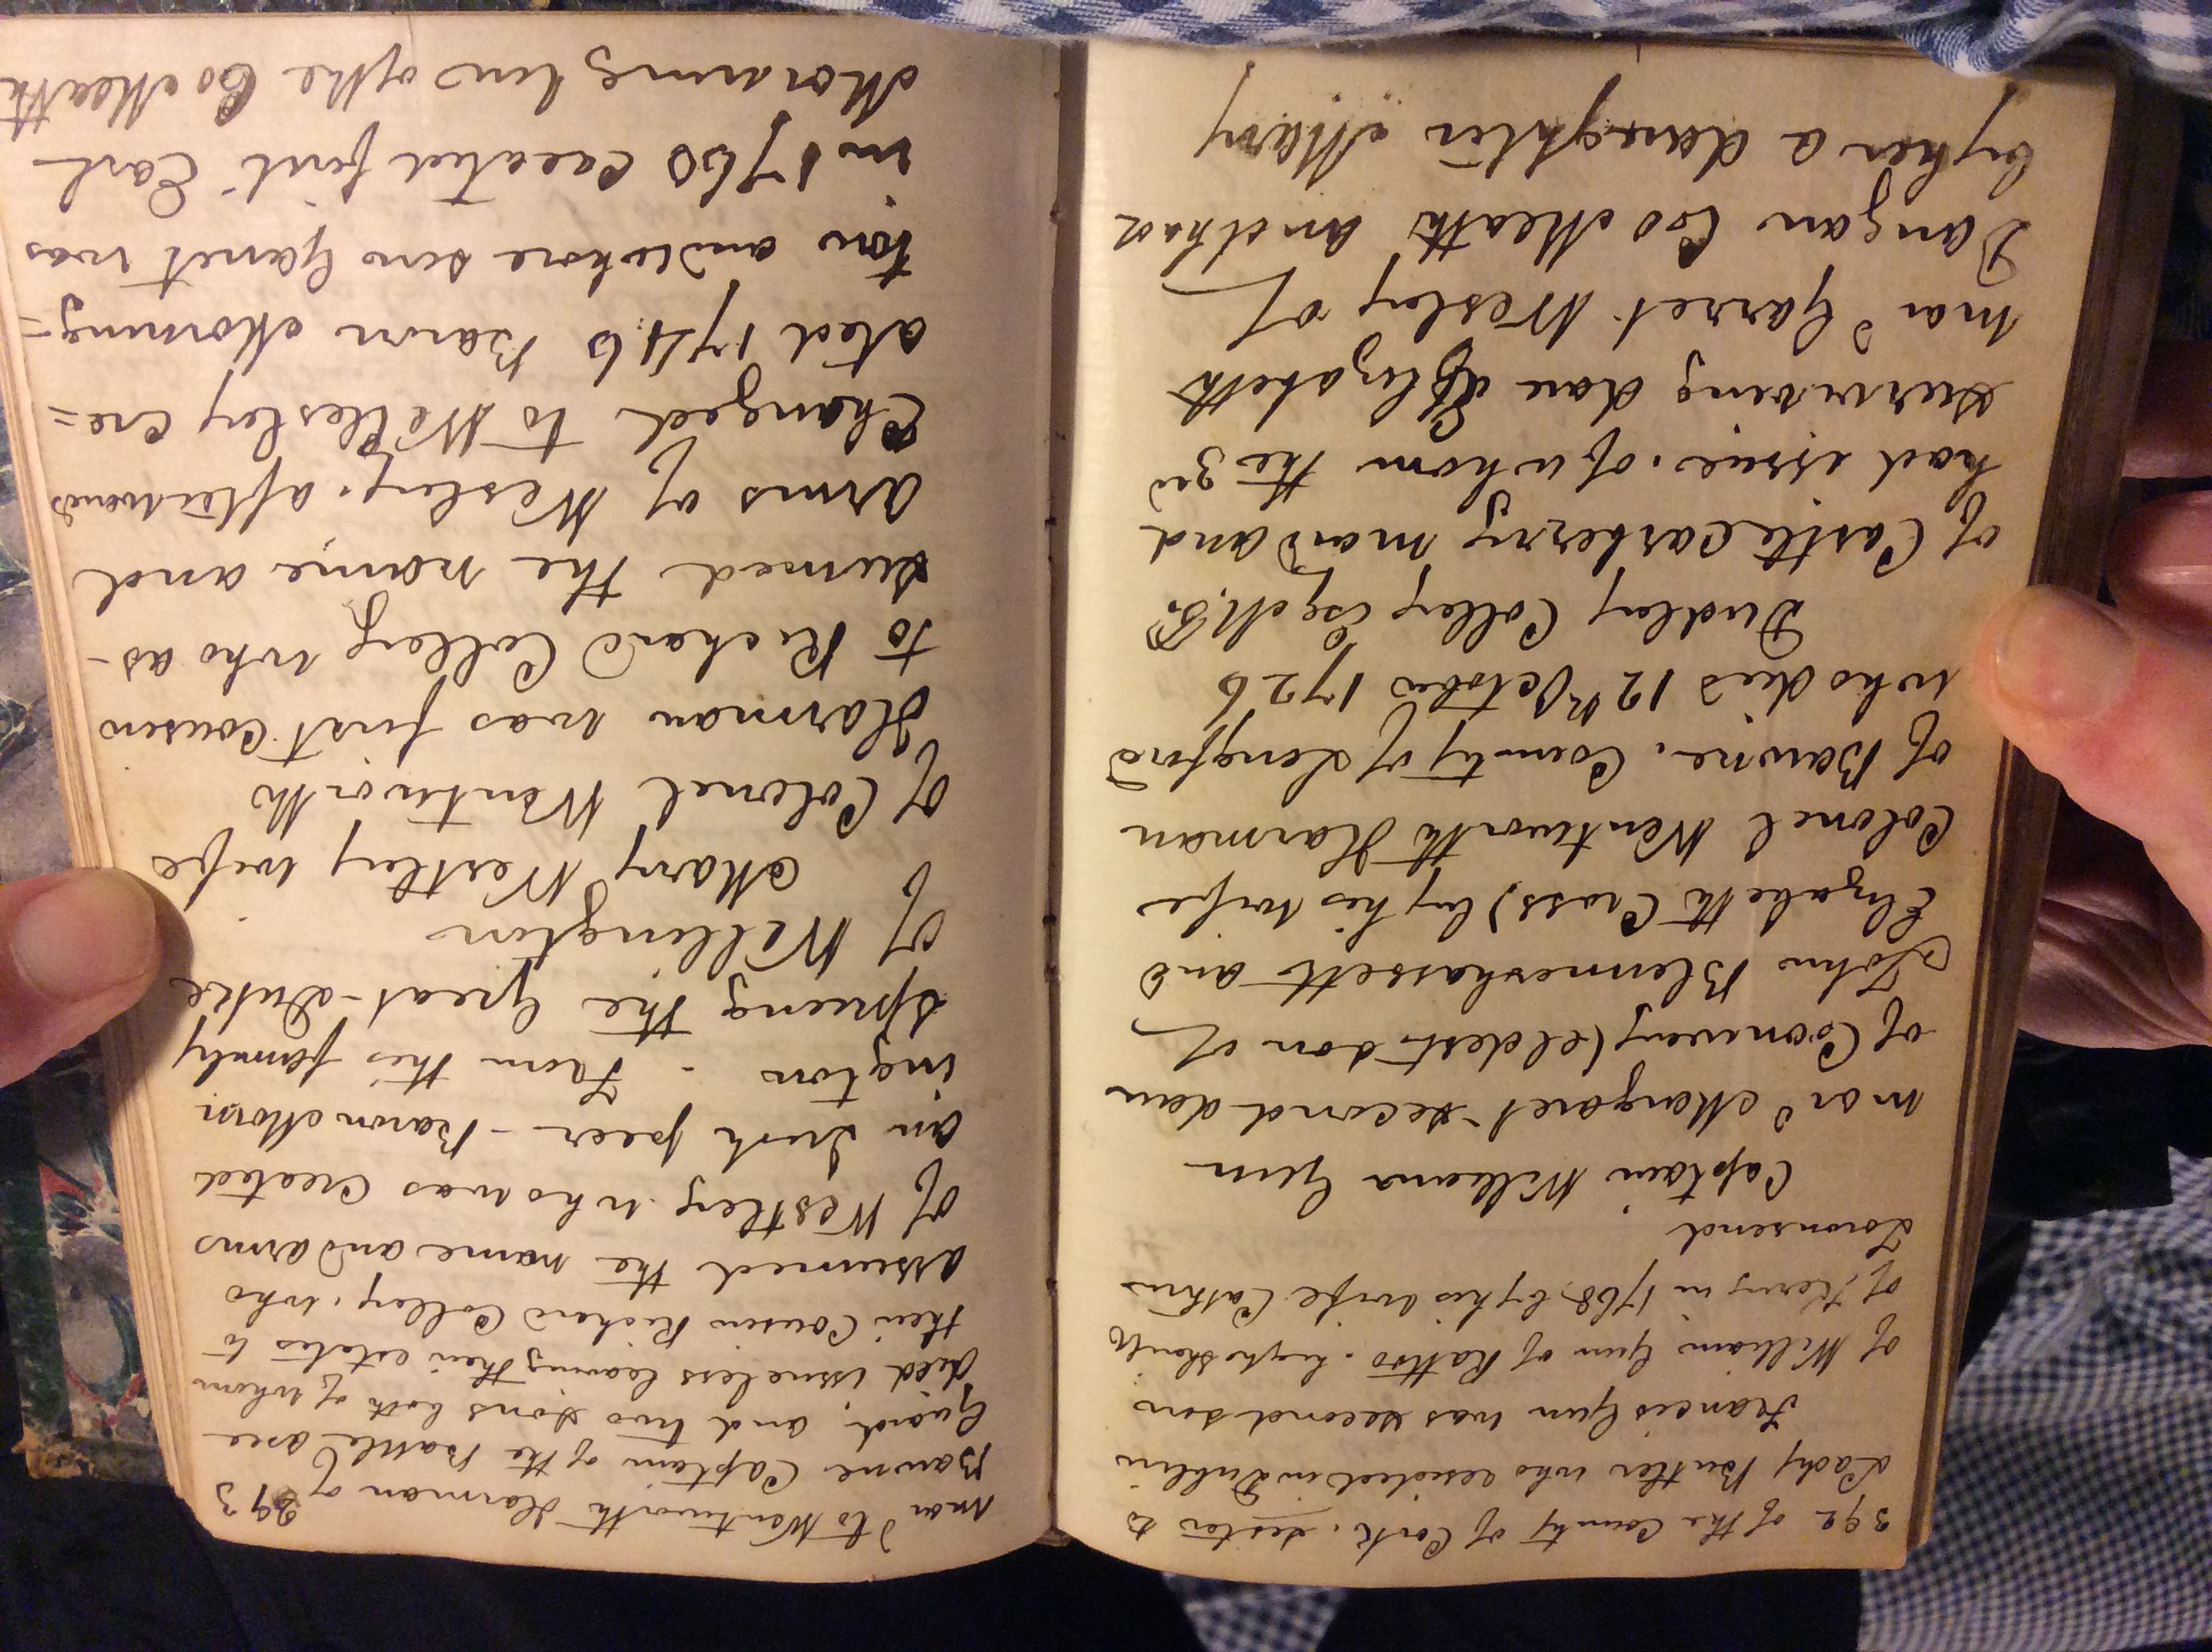 392 of the County of Cork. sister to
Lady Butler who resided in Dublin
Francis Gun was second son
of William Gun of Rattoo. high sheriff
of Kerry in 1768 by his wife Cathne
Townsend
Captain William Gun
mard Margaret second dau
of Cooneveng (eldest son of
John Blennerhassett and
Elizabeth Cross) by his wife
Colonel Wentworth Harman
of Bawne. County of Longford
who died 12th October 1726
Dudley Colley Esq M.P.
of Castlecarberry mard and
had issue. of whom the 3rd
surviving dau Elizabeth
mard Garret Wesley of
Dangan Co Meath and had
by her a daughter Mary
mard to Wentworth Harman of 393
Bawne Captain of the Battle axe
Guards, and two sons both of whom
died issueless leaving their estates to
their Cousin Richard Colley. who
assumed the name and arms
of Westley who was created
an Irish peer - Baron Morn
ington - From this family
sprung the Great - Duke
of Wellington
Mary Westley wife
of Colonel Wentworth
Harman was first Cousin
to Richard Colley who as-
sumed the name and
arms of Wesley. afterwards
Changed to Wellesley cre=
ated 1746 Baron Morning=
ton and whose son Garret was
in 1760 created first Earl
Mornington of the Co Meath